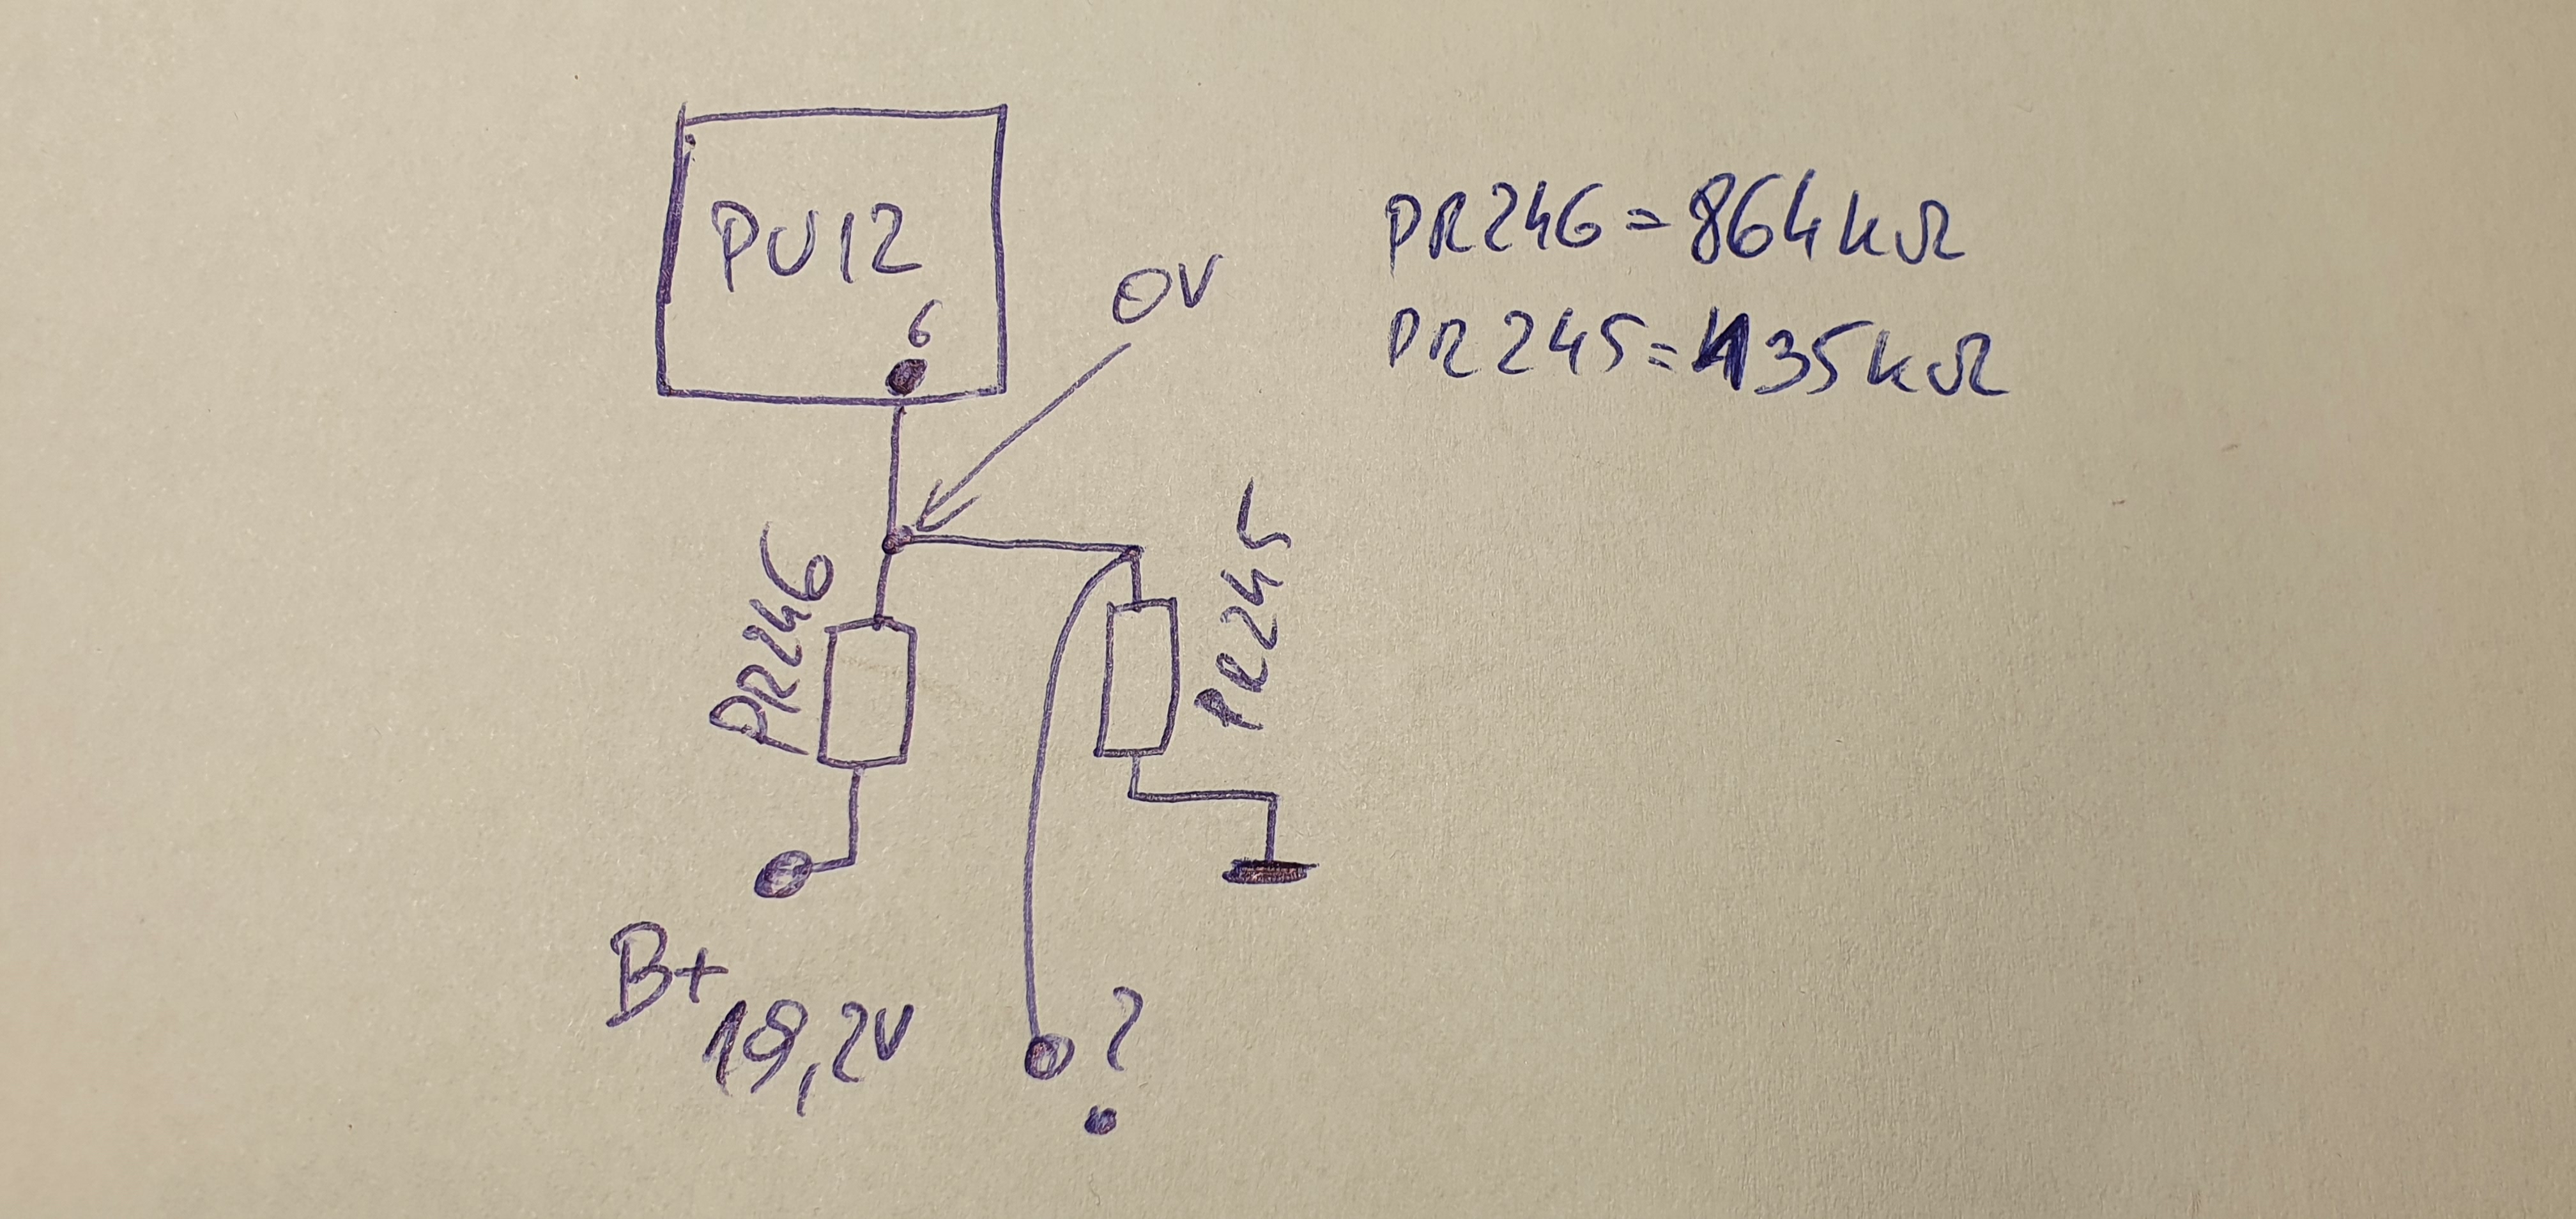 PU12
6
0V
PR246=864kΩ
PR245=435kΩ
PR246
PR245
B+
19,2V
?